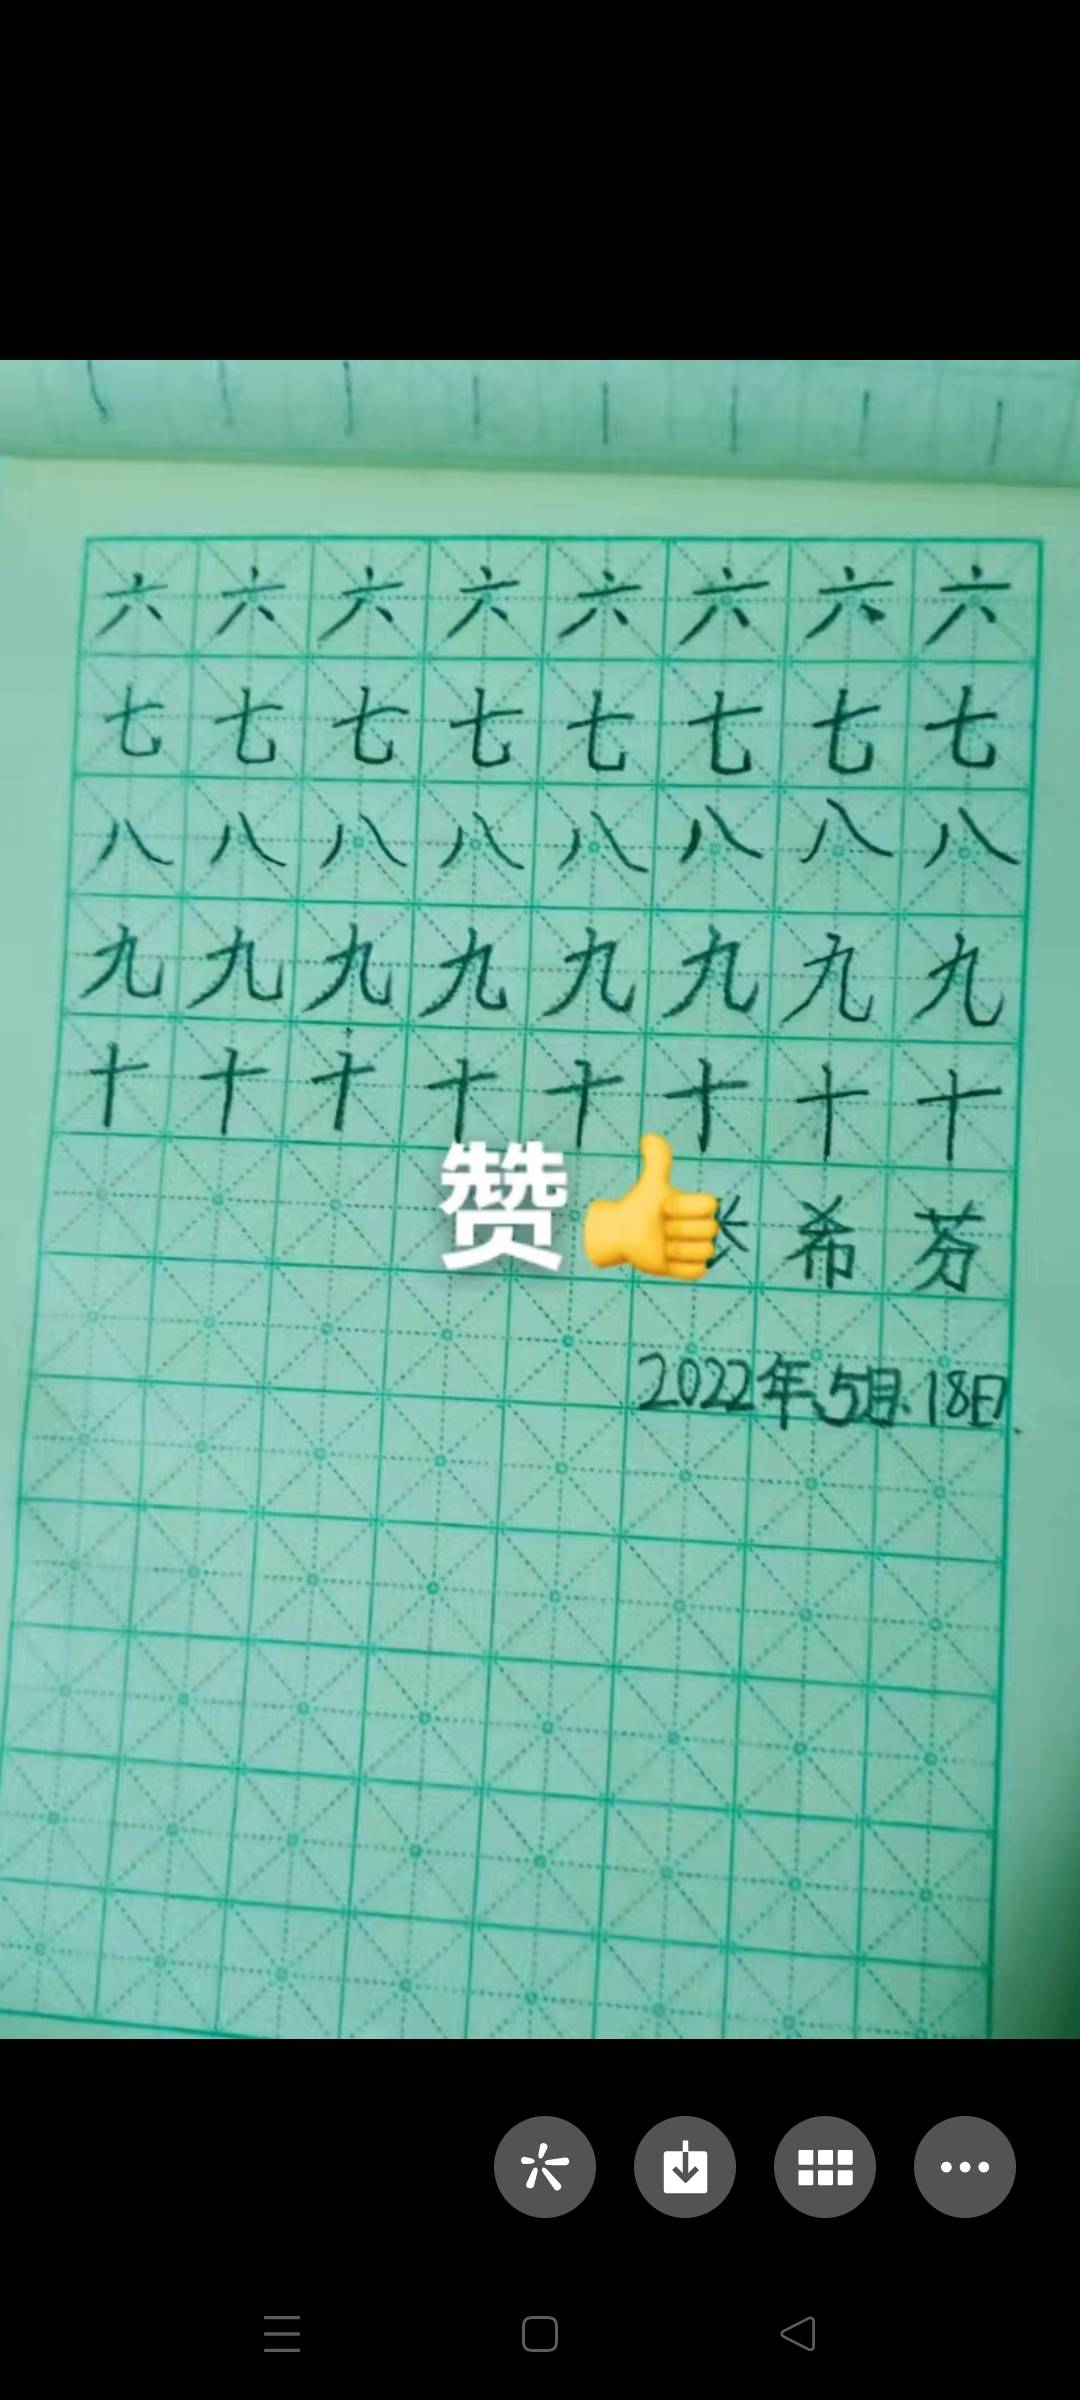 六六六六六六六六
七七七七七七七七
八八八八八八八八
九九九九九九九九
十十十十十十十十
赞👍
希芬
2022年5月.18日